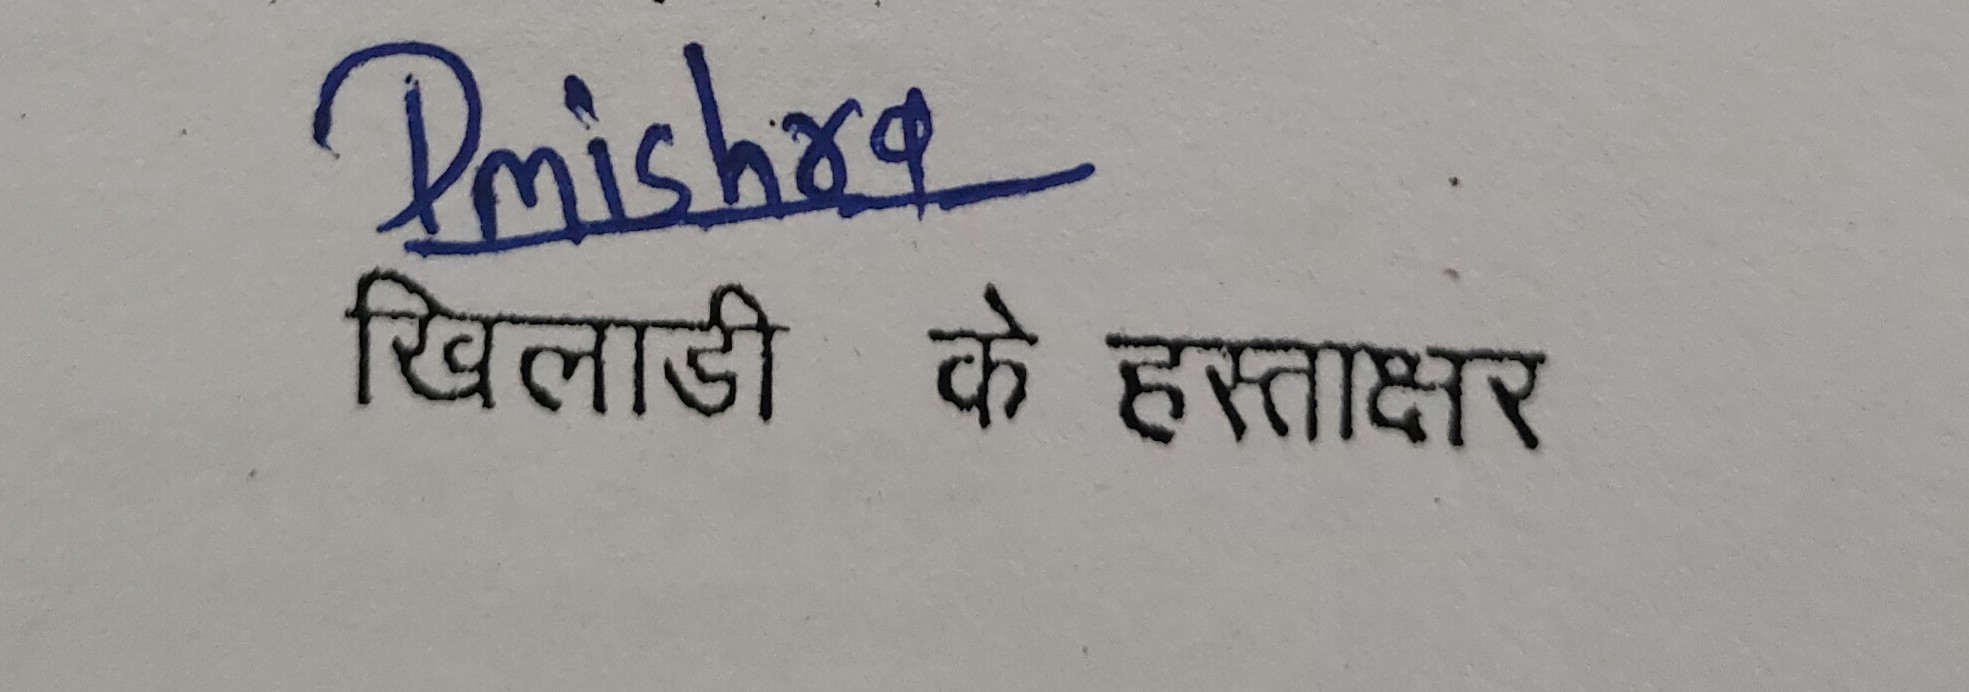 Pmishra
खिलाडी के हस्ताक्षर